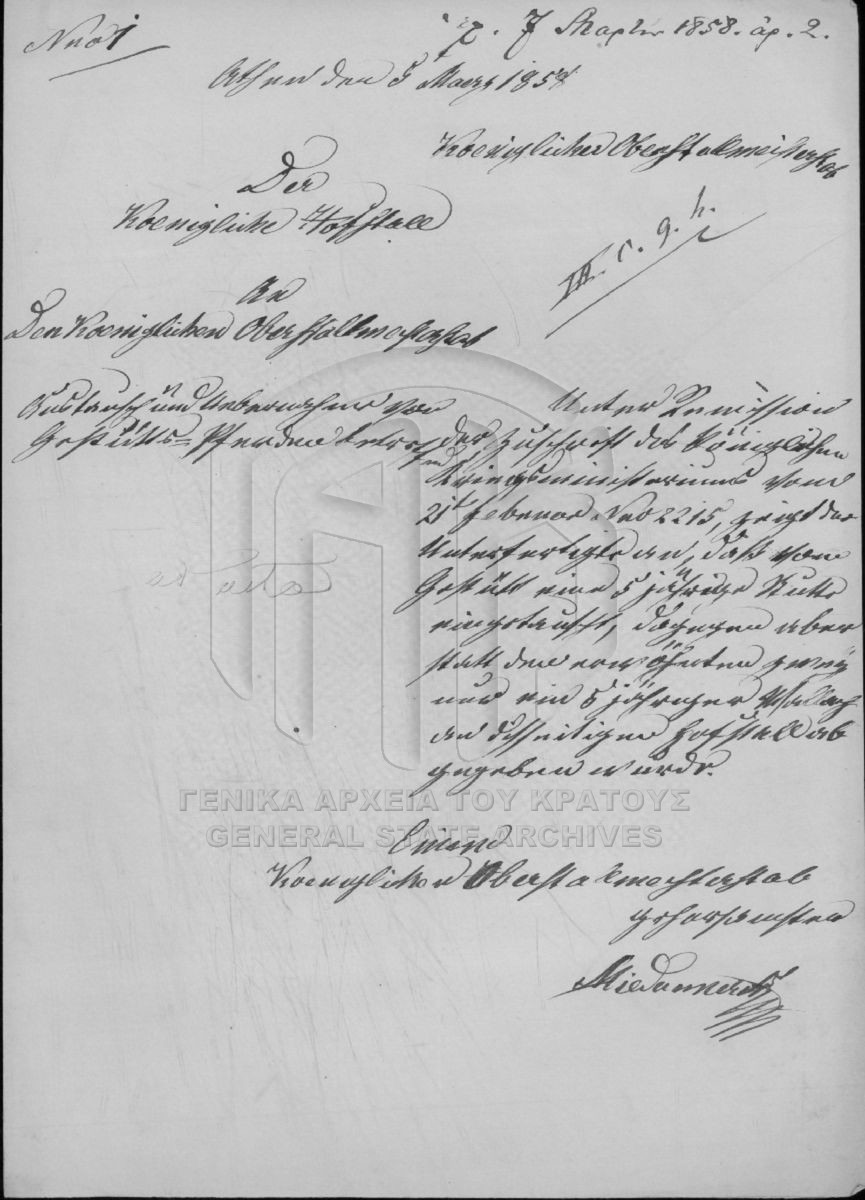 Nro 1
7 Μαρτίου 1858. ἀρ. 2.
Athen den 5 Maerz 1858
Koeniglichen Oberstallmeisterstab
Der
Koenigliche Hofstall
III. c. g. h.
An
Den Koeniglichen Oberstallmeisterstab
Austausch und Uebernahme von
Gestütts=Pferden betreffend
Unter Remission
der Zuschrift des Königlichen
Kriegsministeriums vom
21t Februar Nro 2215, zeigt der
Unterfertigte an, daß vom
Gestütt eine 5 jährige Stutte
eingetauscht, dagegen aber
statt den erwähnten zwey
nur ein 5 jähriger Wallach
an disseitigen Hofstall ab
gegeben wurde.
Einem
Koeniglichen Oberstallmeisterstab
gehorsamster
ΓΕΝΙΚΑ ΑΡΧΕΙΑ ΤΟΥ ΚΡΑΤΟΥΣ
GENERAL STATE ARCHIVES